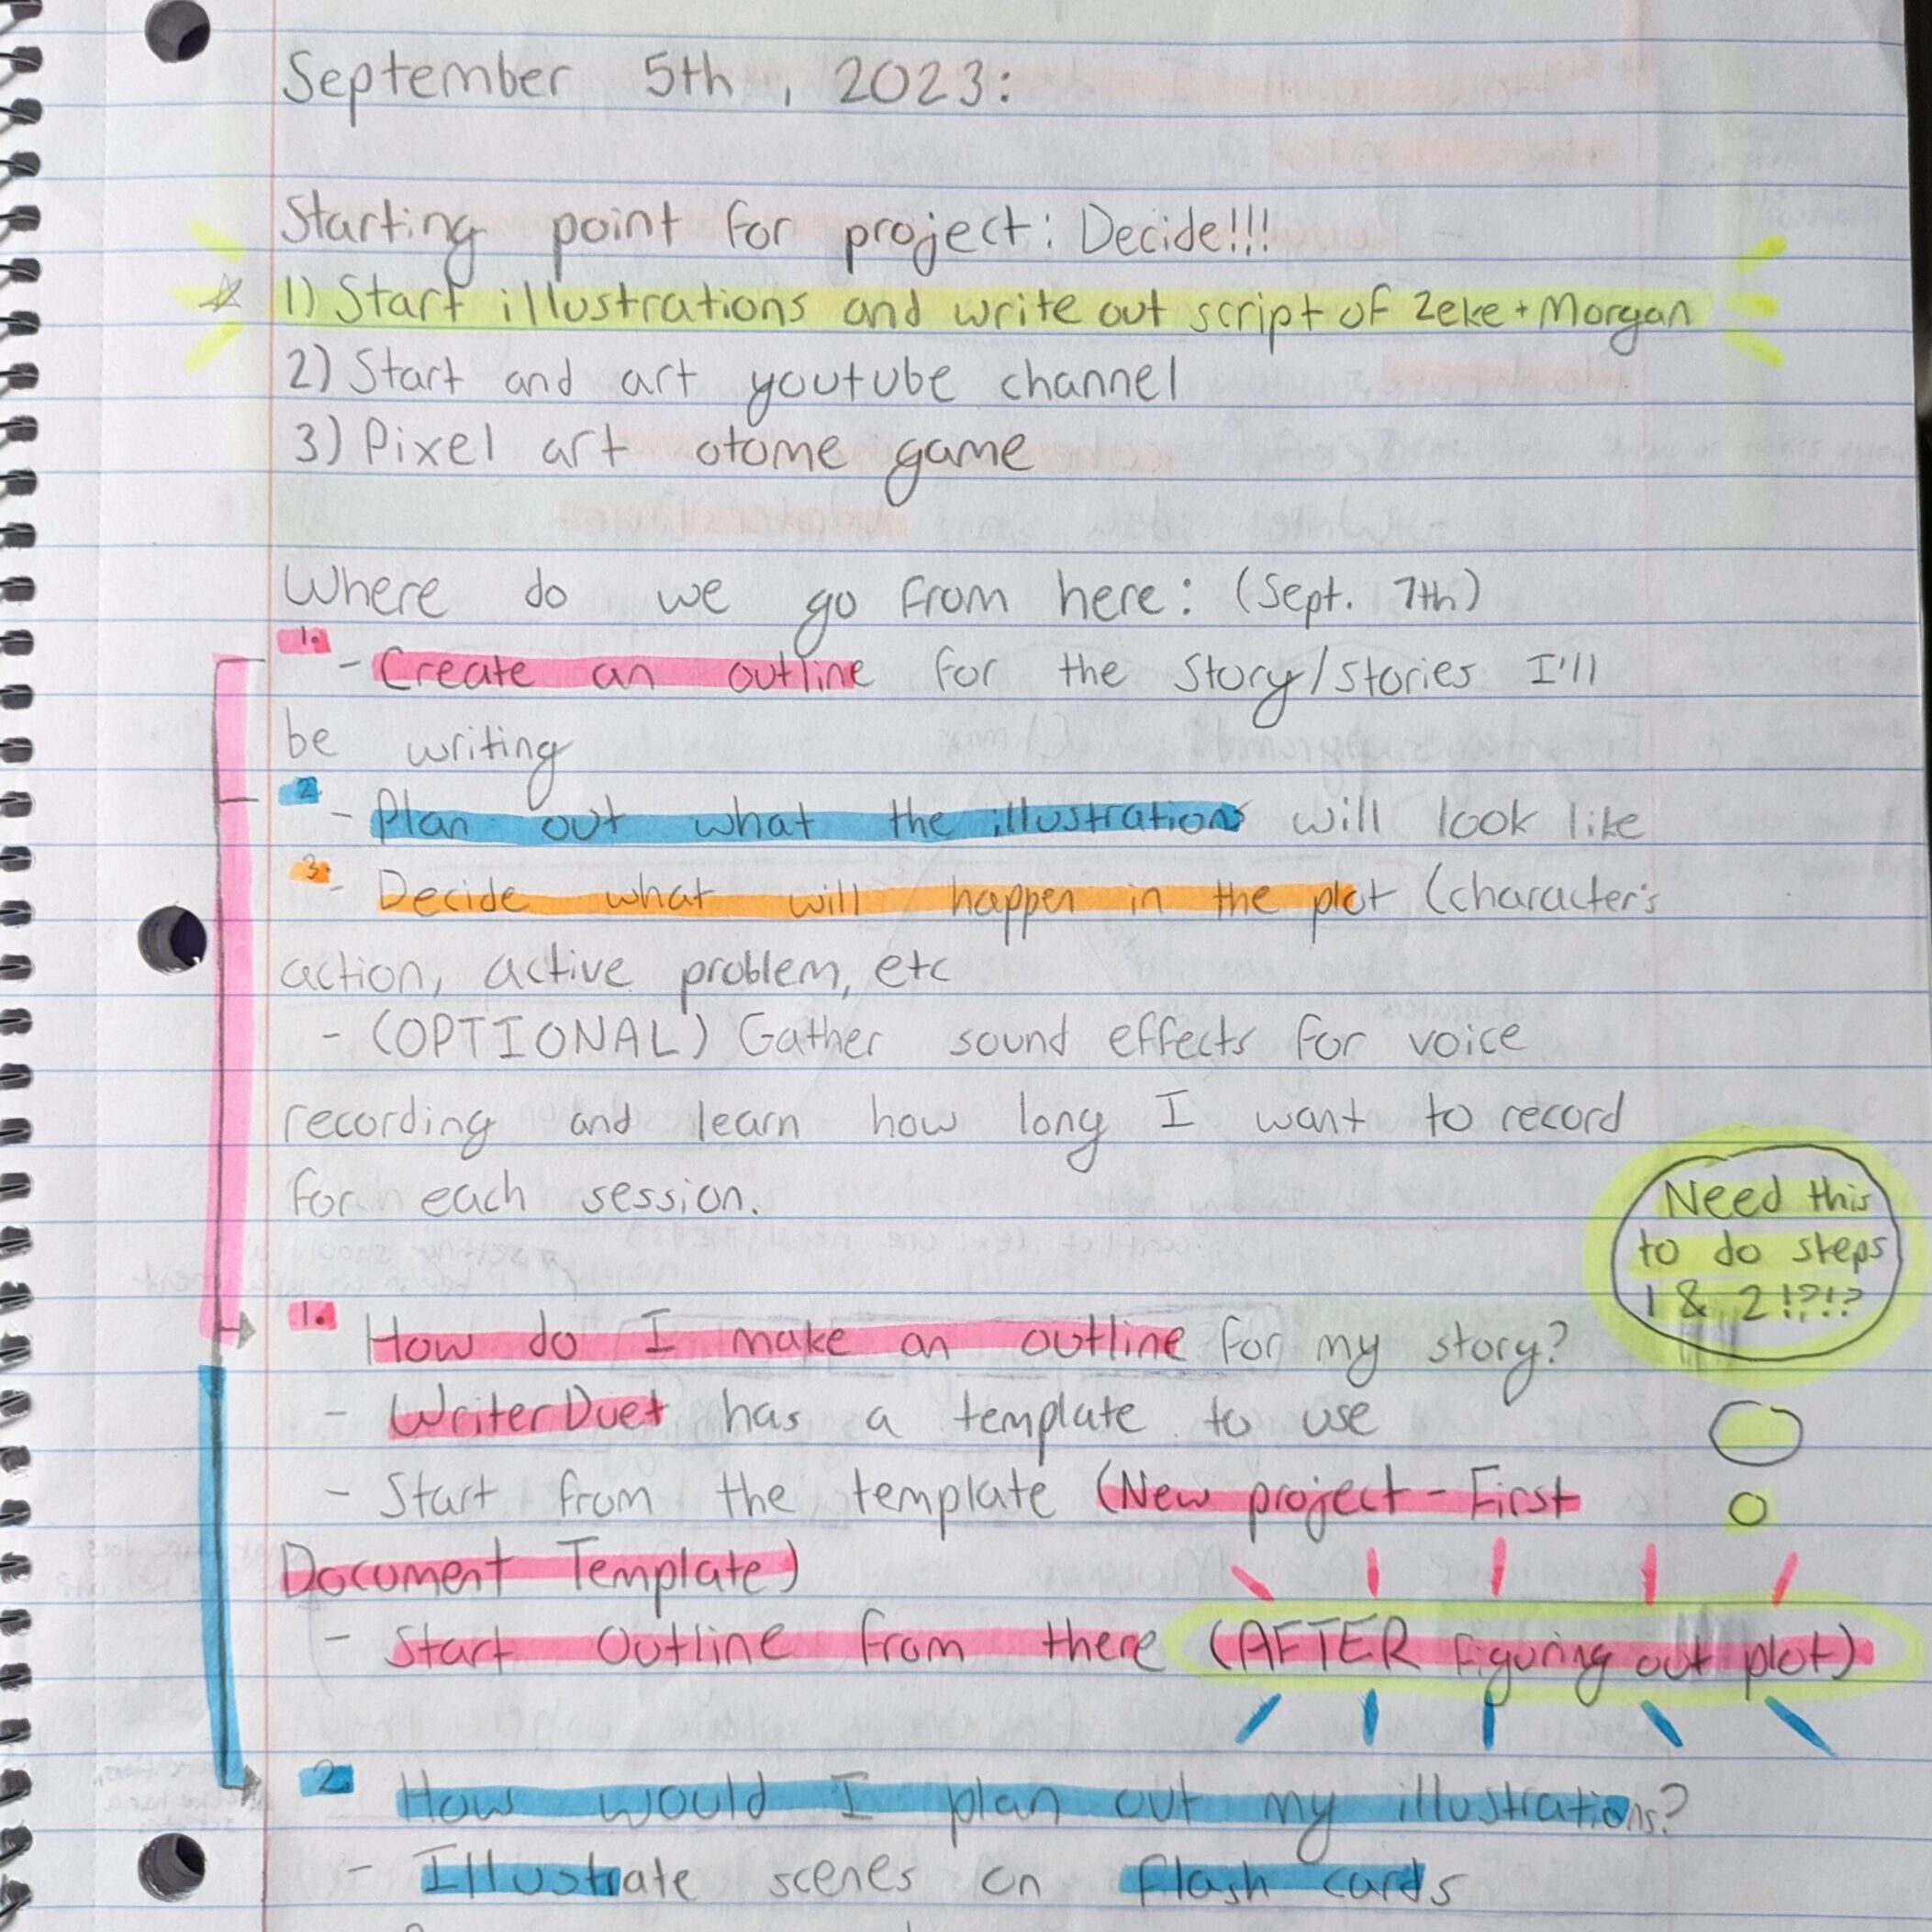 September 5th, 2023:
Starting point for project: Decide!!!
☆ 1) Start illustrations and write out script of Zeke + Morgan
2) Start and art youtube channel
3) Pixel art otome game
Where do we go from here: (Sept. 7th)
1. - Create an outline for the story/stories I'll
be writing
2. - Plan out what the illustrations will look like
3. - Decide what will happen in the plot (character's
action, active problem, etc
- (OPTIONAL) Gather sound effects for voice
recording and learn how long I want to record
for each session.
Need this
to do steps
1 & 2!?!?
1. How do I make an outline for my story?
- WriterDuet has a template to use
- Start from the template (New project - First
Document Template)
- Start Outline from there (AFTER figuring out plot)
2. How would I plan out my illustrations?
- Illustrate scenes on flash cards